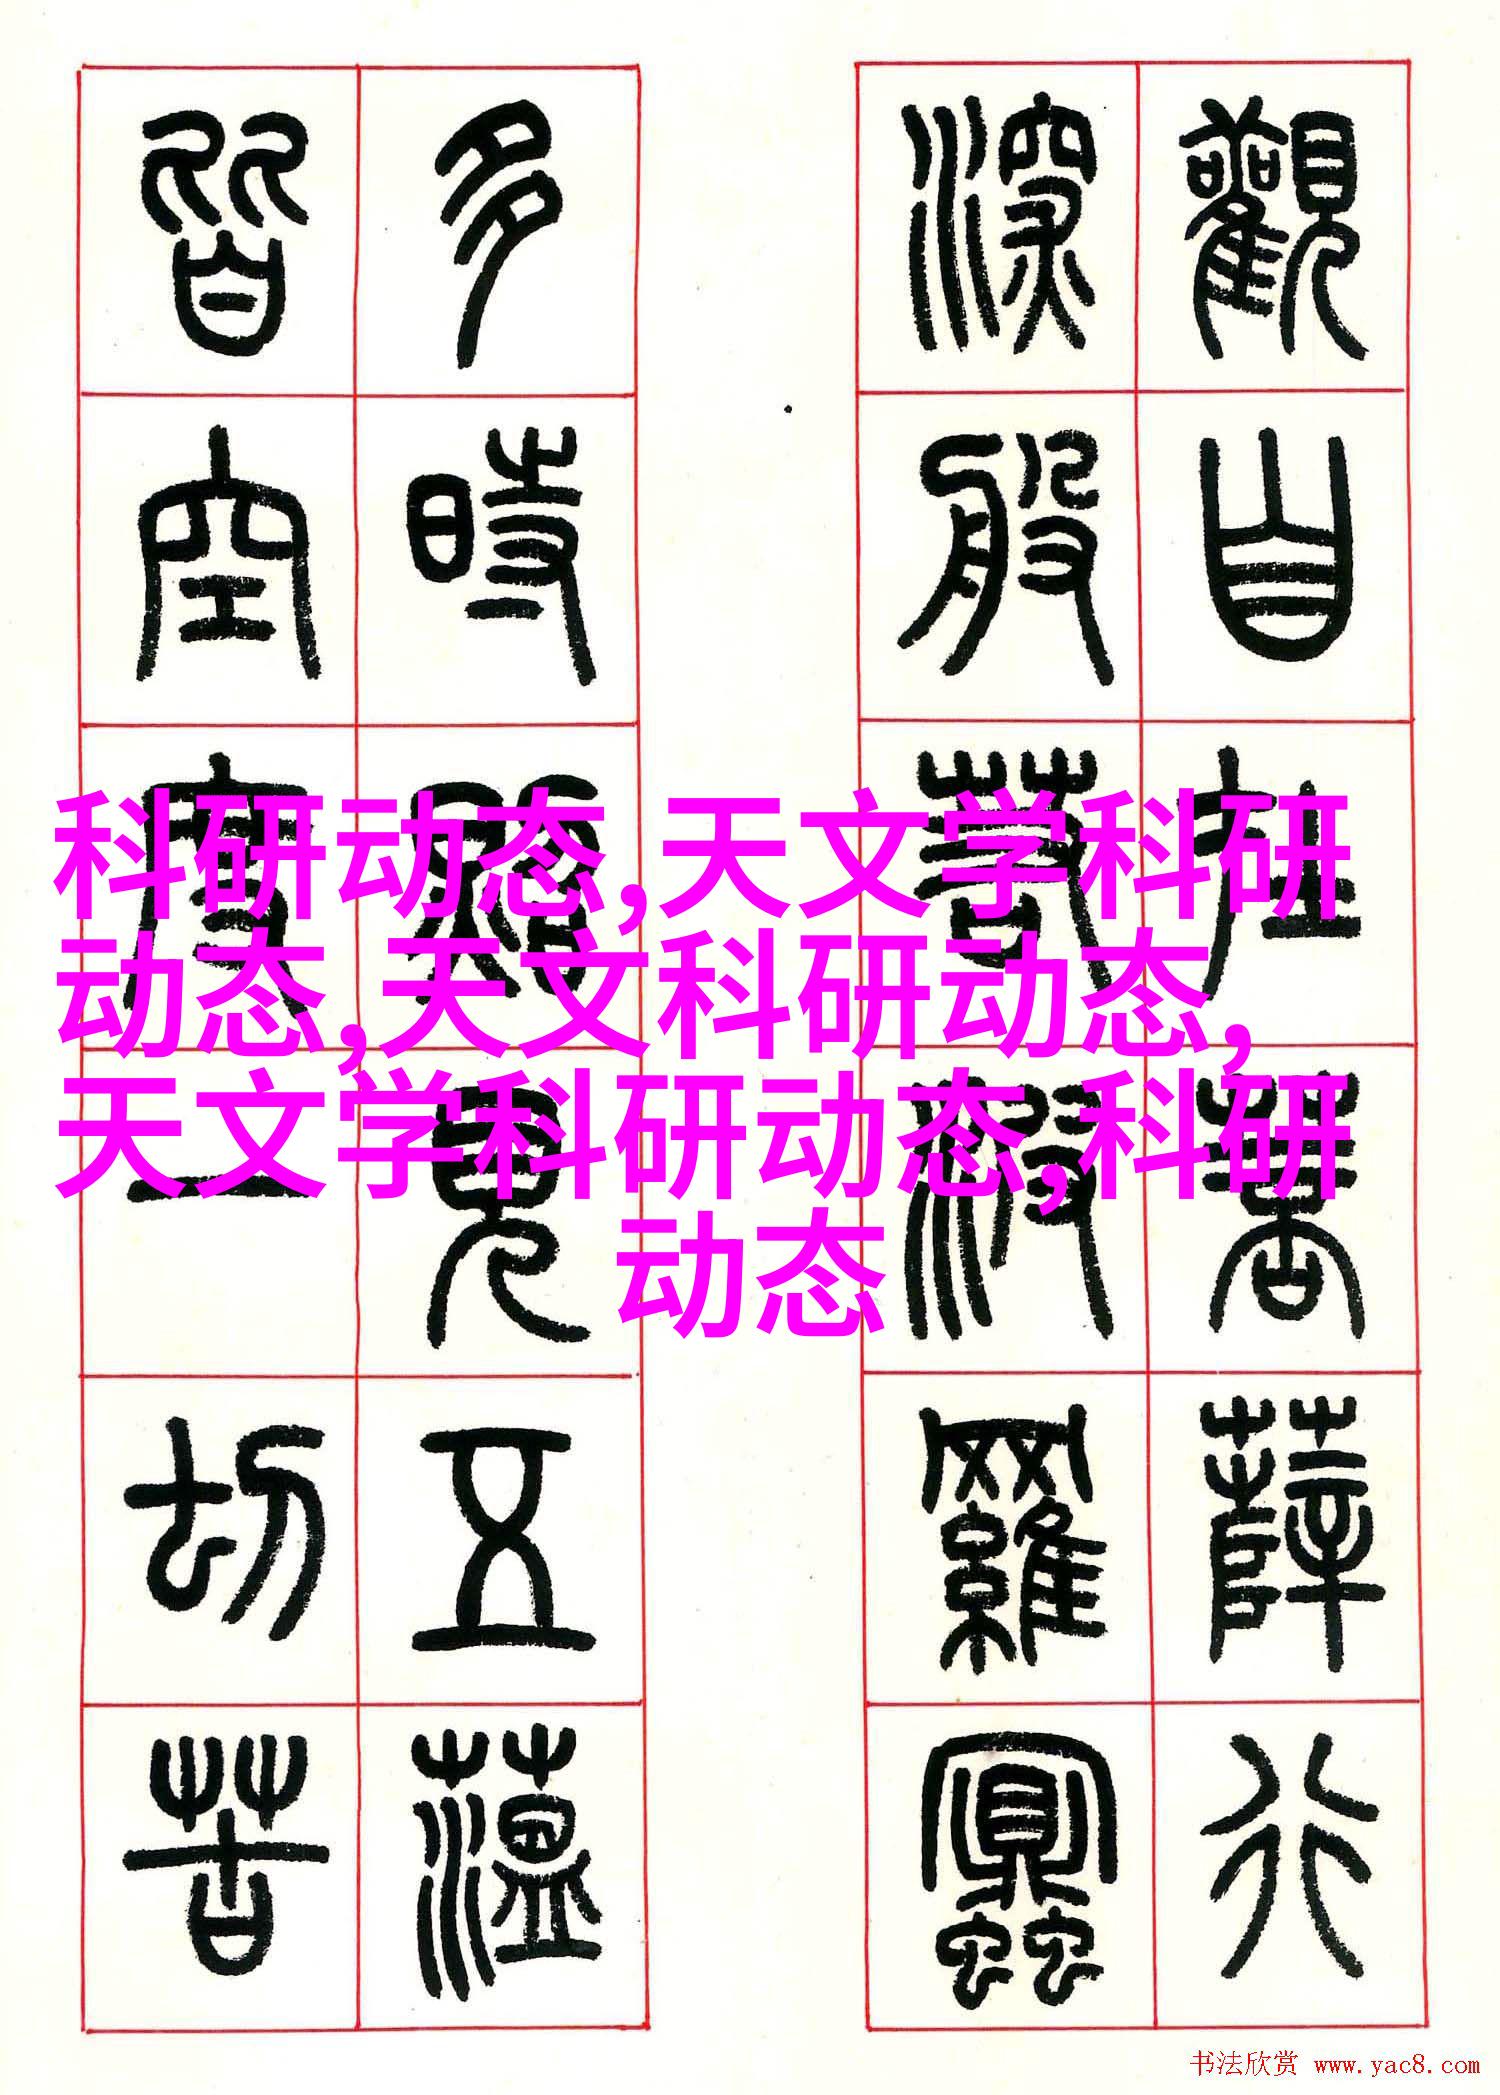 觀自在菩薩行
深般若波羅蜜
多時照見五蘊
皆空度一切苦
科研动态,天文学科研
动态,天文科研动态,
天文学科研动态,科研
动态
书法欣赏 www.yac8.com